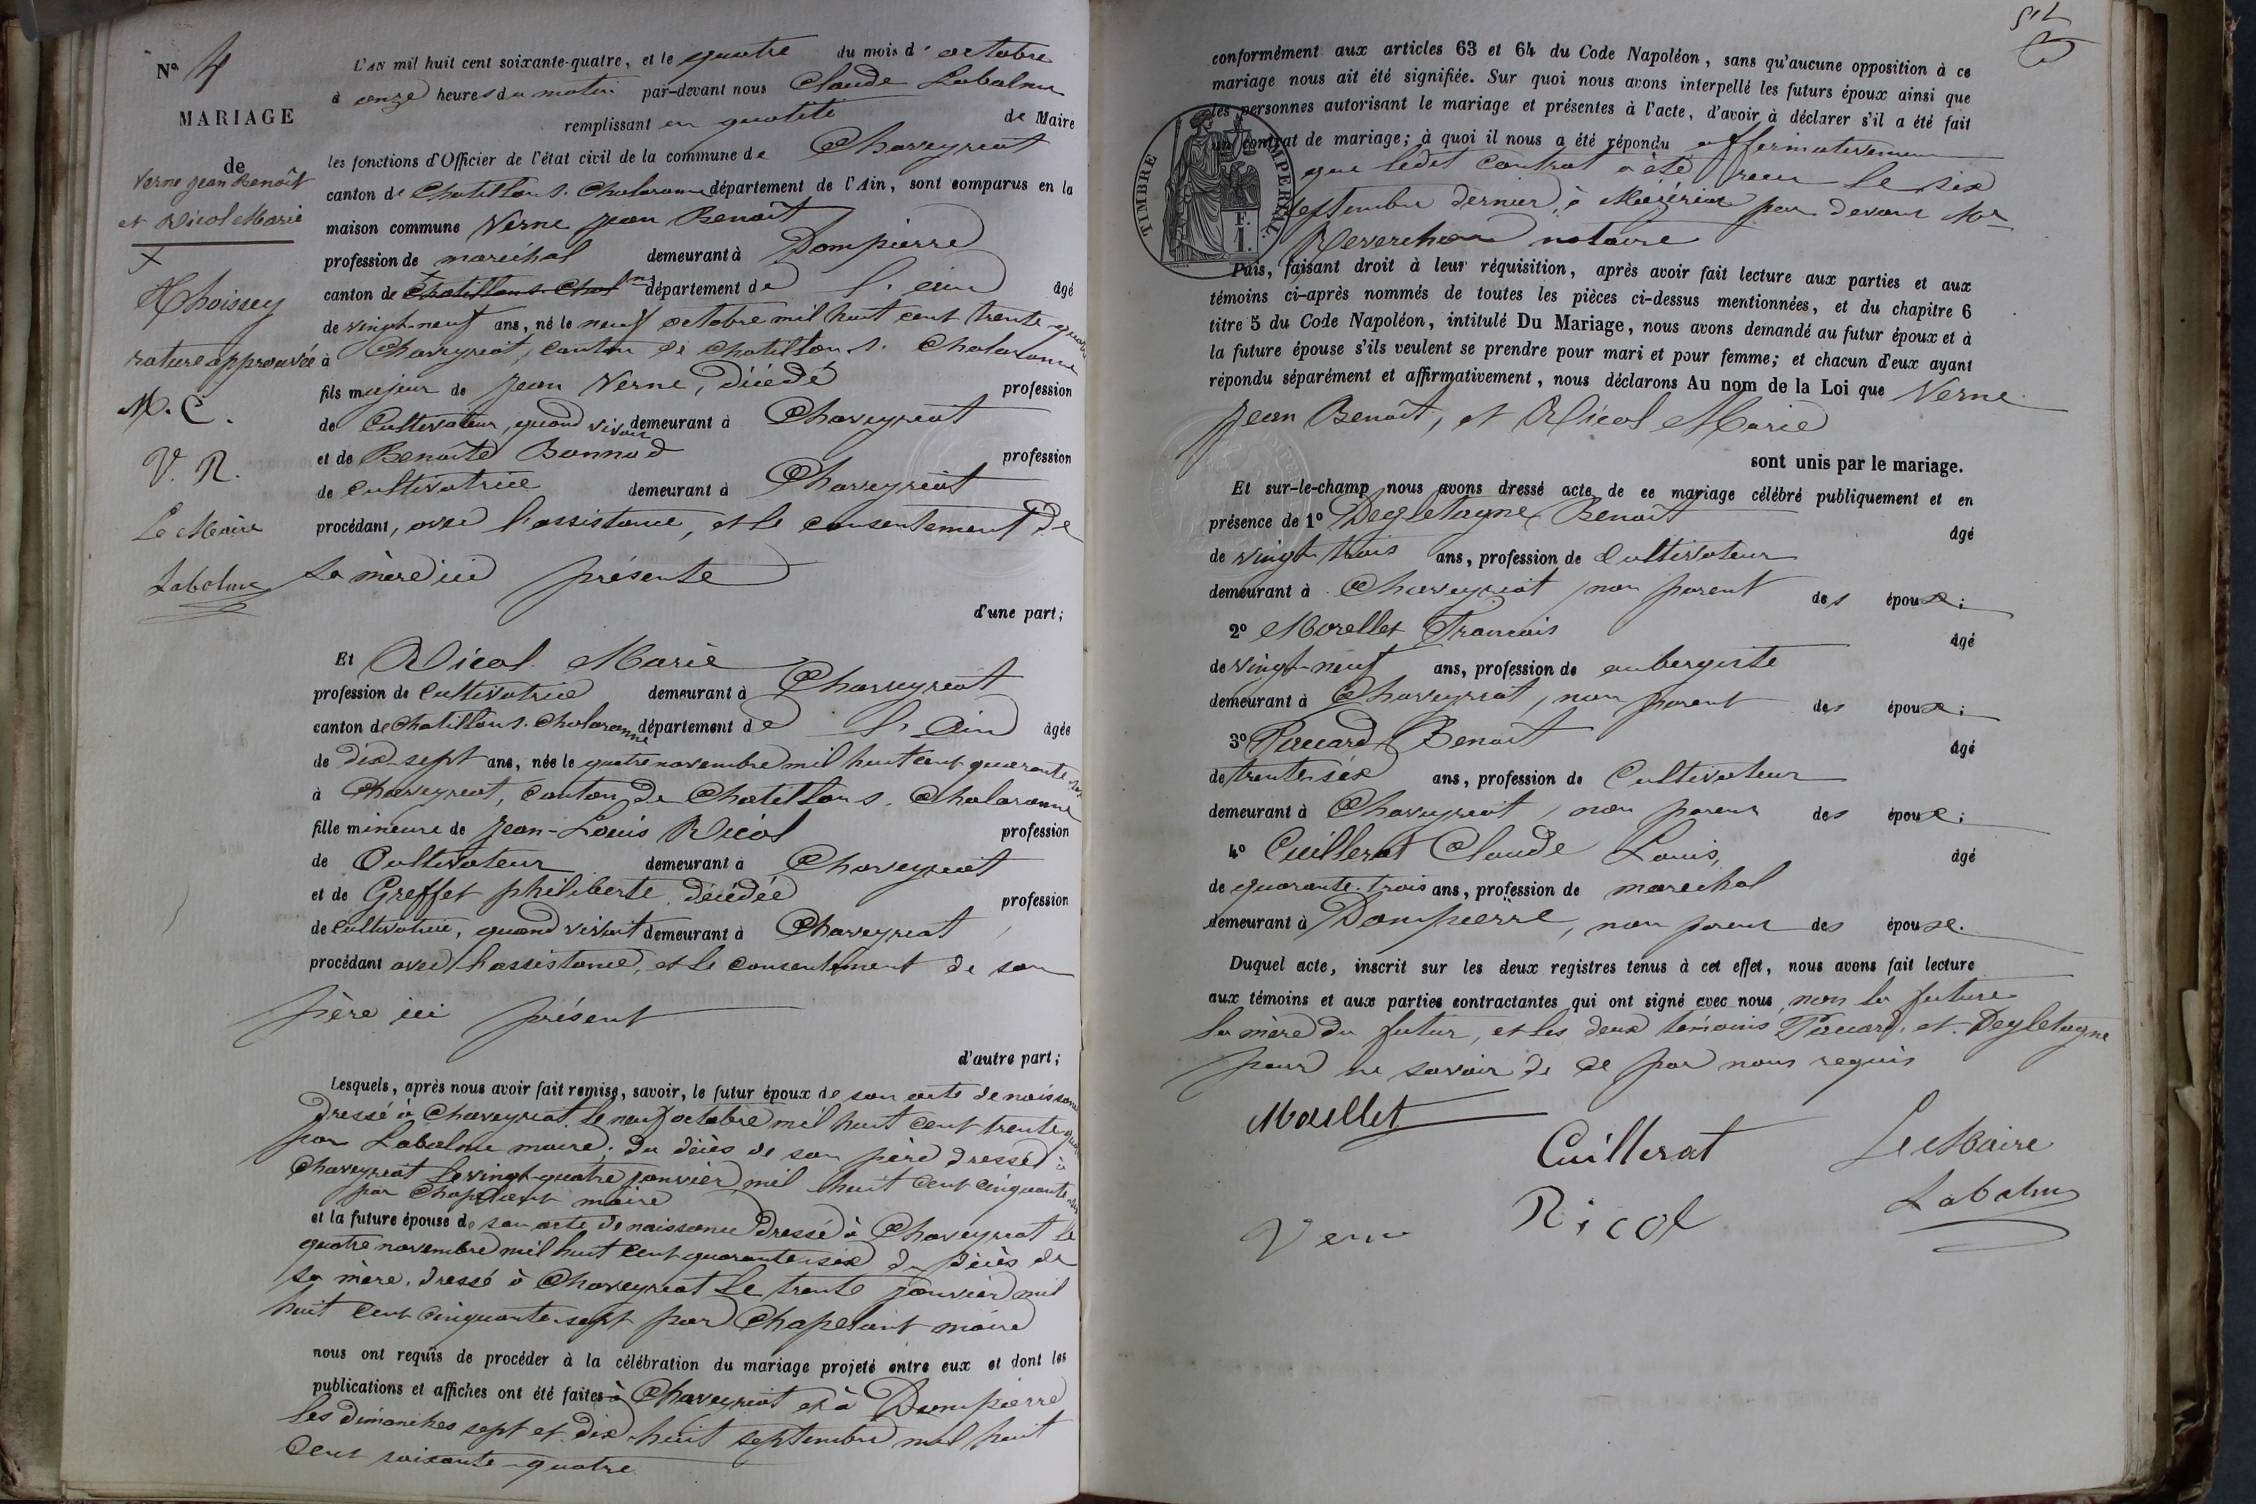 N° 4
MARIAGE
de
Verne Jean Benoît
et Nicol Marie
X Thoissey
rature approuvée
M. C.
V. R.
Le Maire
Labalme
L'AN mil huit cent soixante-quatre, et le quatre du mois d'octobre
à onze heures du matin par-devant nous Claude Labalme
remplissant en qualité de Maire
les fonctions d'Officier de l'état civil de la commune de Chaveyriat
canton de Chatillon s. Chalaronne département de l'Ain, sont comparus en la
maison commune Verne Jean Benoît
profession de maréchal demeurant à Dompierre
canton de X Chatillon s. Chal.nne département de l'ain âgé
de vingt-neuf ans, né le neuf octobre mil huit cent trente-quatre
à Chaveyriat, canton de Chatillon s. Chalaronne
fils majeur de Jean Verne, décédé profession
de Cultivateur, quand vivait demeurant à Chaveyriat
et de Benoîte Bonnod profession
de cultivatrice demeurant à Chaveyriat
procédant, avec l'assistance, et le consentement de
sa mère ici présente
d'une part;
Et Nicol Marie
profession de Cultivatrice demeurant à Chaveyriat
canton de Chatillon s. Chalaronne département de l'Ain âgée
de dix-sept ans, née le quatre novembre mil huit cent quarante-six
à Chaveyriat, canton de Chatillon s. Chalaronne
fille mineure de Jean-Louis Nicol profession
de Cultivateur demeurant à Chaveyriat
et de Greffet philiberte, décédée profession
de cultivatrice, quand vivait demeurant à Chaveyriat,
procédant avec l'assistance, et le consentement de son
père ici présent
d'autre part;
Lesquels, après nous avoir fait remise, savoir, le futur époux de son acte de naissance
dressé à Chaveyriat le neuf octobre mil huit cent trente quatre
par Labalme maire; du décès de son père dressé à
Chaveyriat le vingt-quatre janvier mil huit cent cinquante
par Chapelant maire
et la future épouse de son acte de naissance dressé à Chaveyriat le
quatre novembre mil huit cent quarante-six du décès de
sa mère, dressé à Chaveyriat le trente janvier mil
huit cent cinquante-sept par Chapelant maire
nous ont requis de procéder à la célébration du mariage projeté entre eux et dont les
publications et affiches ont été faites à Chaveyriat et à Dompierre
les dimanches sept et dix-huit septembre mil huit
cent soixante-quatre
conformément aux articles 63 et 64 du Code Napoléon, sans qu'aucune opposition à ce
mariage nous ait été signifiée. Sur quoi nous avons interpellé les futurs époux ainsi que
les personnes autorisant le mariage et présentes à l'acte, d'avoir à déclarer s'il a été fait
un contrat de mariage; à quoi il nous a été répondu affirmativement
que ledit contrat a été reçu le six
septembre dernier, à Mézériat par devant Mr
Reverchon notaire
TIMBRE IMPERIAL.
F.
1.
Puis, faisant droit à leur réquisition, après avoir fait lecture aux parties et aux
témoins ci-après nommés de toutes les pièces ci-dessus mentionnées, et du chapitre 6
titre 5 du Code Napoléon, intitulé Du Mariage, nous avons demandé au futur époux et à
la future épouse s'ils veulent se prendre pour mari et pour femme; et chacun d'eux ayant
répondu séparément et affirmativement, nous déclarons Au nom de la Loi que Verne
Jean Benoît, et Nicol Marie
sont unis par le mariage.
Et sur-le-champ nous avons dressé acte de ce mariage célébré publiquement et en
présence de 1° Degletagne Benoît âgé
de vingt trois ans, profession de Cultivateur
demeurant à Chaveyriat, non parent des époux;
2° Morellet Francois âgé
de vingt-neuf ans, profession de aubergiste
demeurant à Chaveyriat, non parent des époux;
3° Benoît âgé
de trente-six ans, profession de Cultivateur
demeurant à Chaveyriat, non parent des époux;
4° Cuillerat Claude Louis, âgé
de quarante-trois ans, profession de maréchal
demeurant à Dompierre, non parent des époux.
Duquel acte, inscrit sur les deux registres tenus à cet effet, nous avons fait lecture
aux témoins et aux parties contractantes qui ont signé avec nous, non la future
la mère du futur, et les deux témoins et Degletagne
pour ne savoir de ce par nous requis
Morellet
Cuillerat
Le Maire
Verne
Nicol
Labalme